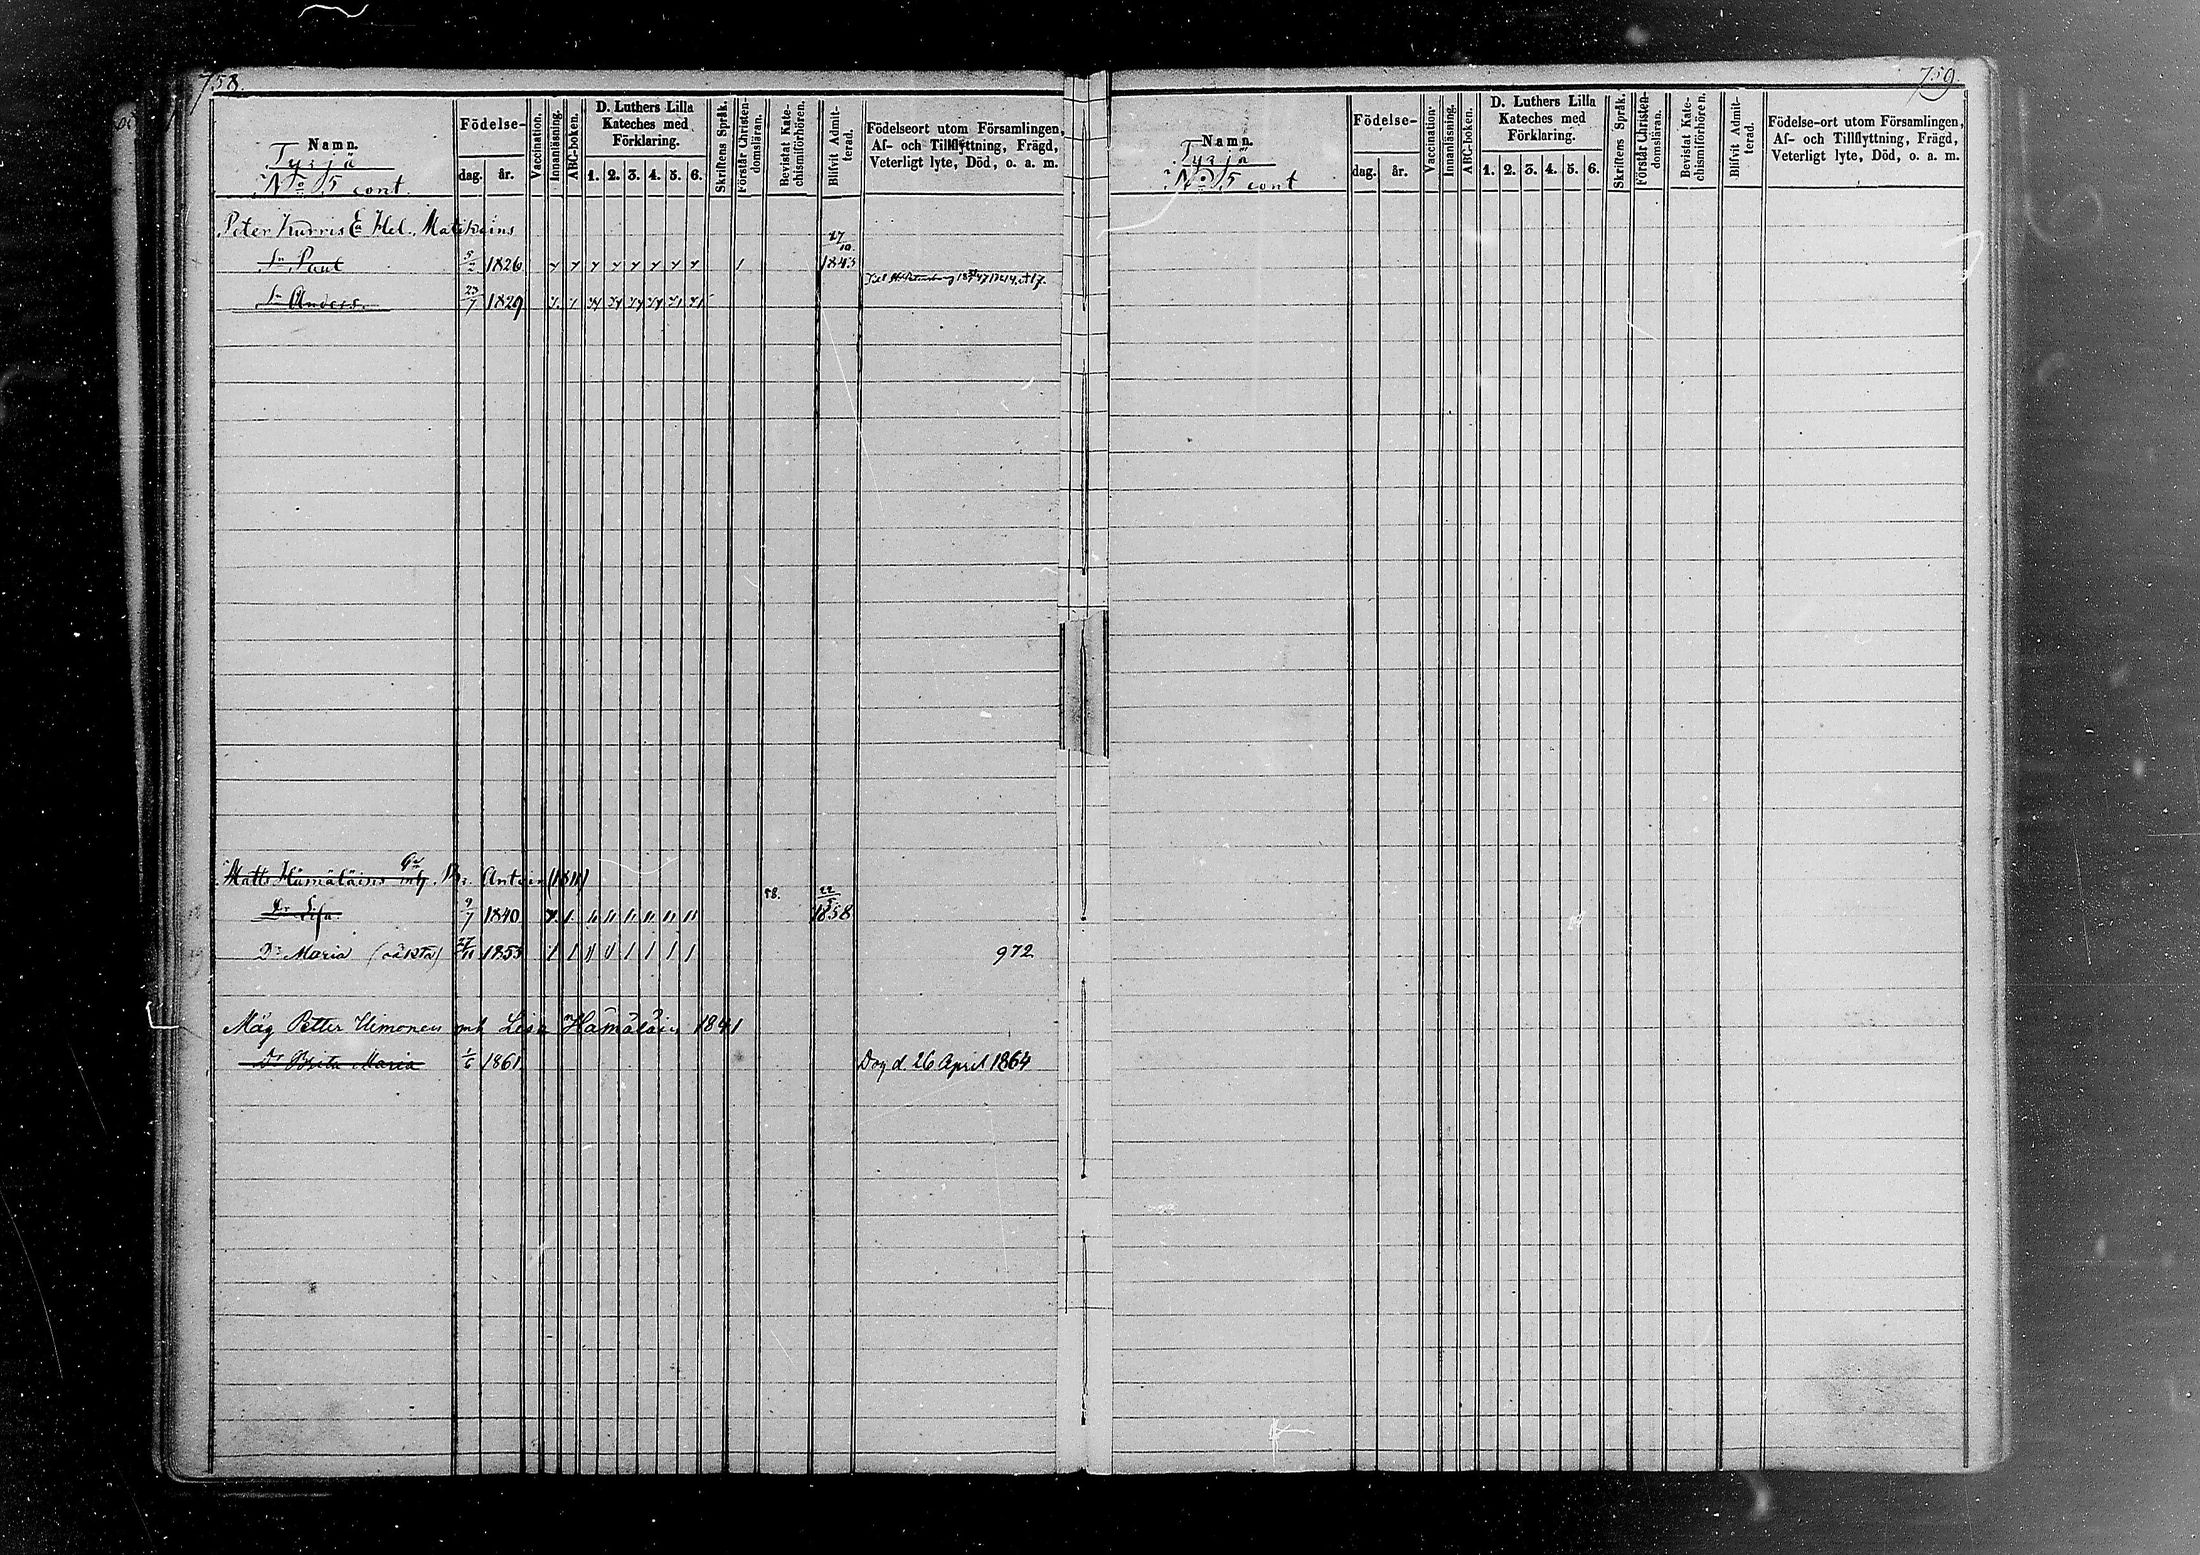 758.
Namn.
Tyrjä
No 5 cont.
Födelse-
dag. år.
Vaccination.
Innanläsning.
ABC-boken.
D. Luthers Lilla
Kateches med
Förklaring.
1. 2. 3. 4. 5. 6.
Skriftens Språk.
Förstår Christen-
domsläran.
Bevistat Kate-
chismiförhören.
Blifvit Admit-
terad.
Födelseort utom Församlingen,
Af- och Tillflyttning, Frägd,
Veterligt lyte, Död, o. a. m.
Peter Kurris Ea Hel. Matikains
Sn Paul 5/2 1826 27/10 1843
Sn Anders 23/7 1829
Matts Hämäläins Br. Anton (1811)
Dr Lisa 9/7 1840 58. 1858
Dr Maria 27/11 1853 972
Måg Petter Himonen mh Lisa Hämäläin 1841
Dr Brita Maria 1/6 1861 Dog d. 26 April 1864
759.
Namn.
Tyrjä
No 5 cont
Födelse-
dag. år.
Vaccination.
Innanläsning.
ABC-boken.
D. Luthers Lilla
Kateches med
Förklaring.
1. 2. 3. 4. 5. 6.
Skriftens Språk.
Förstår Christen-
domsläran.
Bevistat Kate-
chismiförhören.
Blifvit Admit-
terad.
Födelse-ort utom Församlingen,
Af- och Tillflyttning, Frägd,
Veterligt lyte, Död, o. a. m.